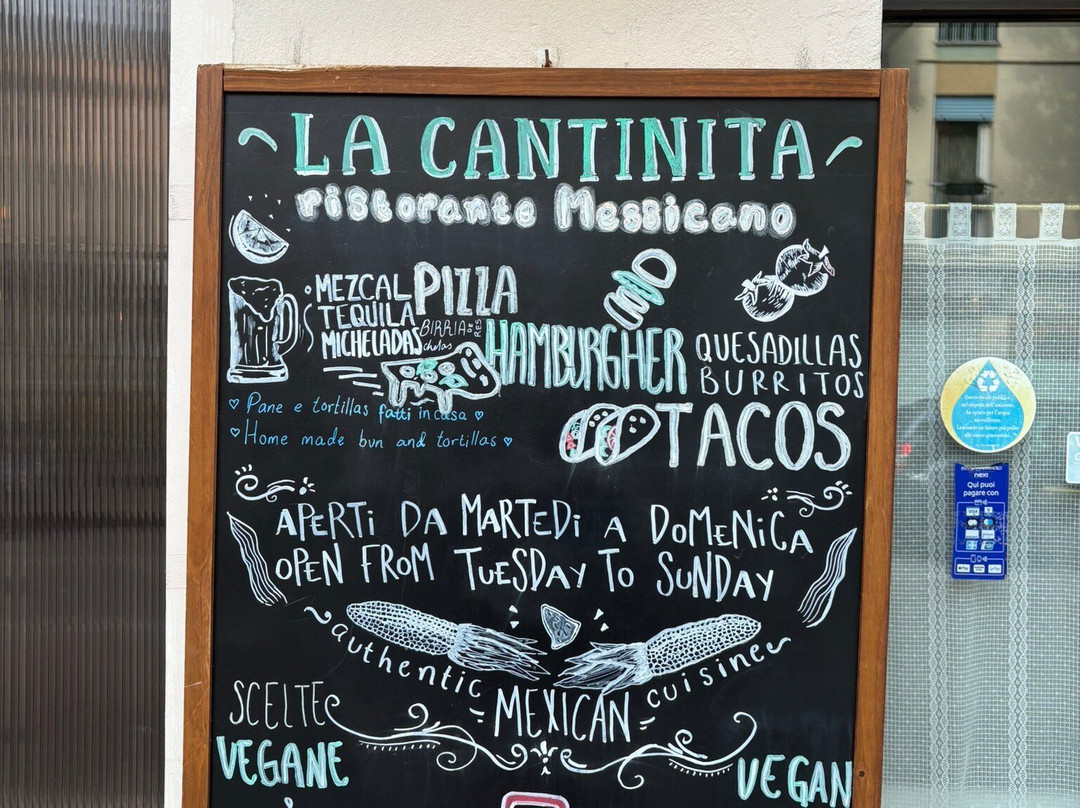 LA CANTINITA
ristorante Messicano
MEZCAL
TEQUILA
MICHELADAS
PIZZA
BIRRIA DE RES
chelas
HAMBURGHER
QUESADILLAS
BURRITOS
TACOS
Pane e tortillas fatti in casa
Home made bun and tortillas
APERTI DA MARTEDI A DOMENICA
OPEN FROM TUESDAY TO SUNDAY
authentic MEXICAN cuisine
SCELTE
VEGANE
VEGAN
nexi
Qui puoi
pagare con